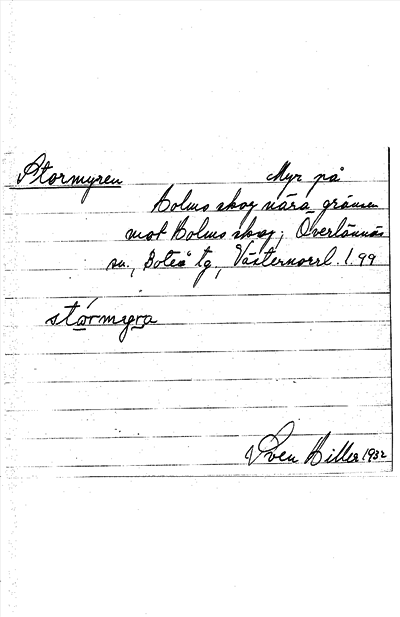 Stormyren Myr på
Holms skog nära gränsen
mot Holms skog; Överlännäs
sn., Boteå tg, Västernorrl. l. 99
stormyra
Sven Hiller 1932